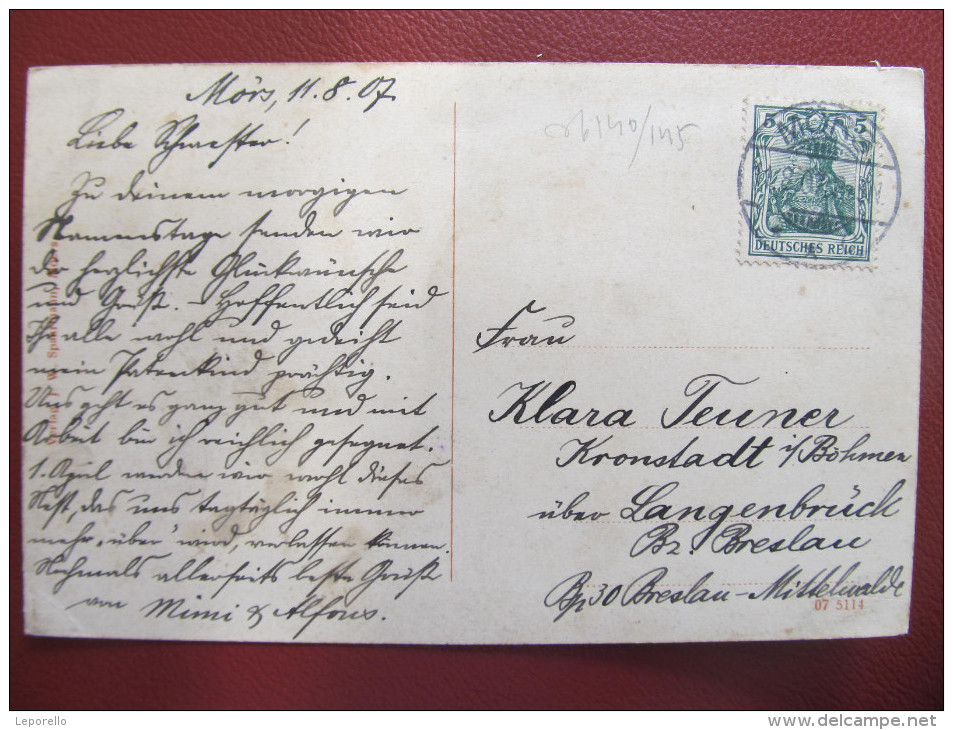 Mörs, 11.8.07
Liebe Schwester!
Zu deinem morgigen
Namenstage senden wir
dir herzlichste Glückwünsche
und Grüße. – Hoffentlich seid
Ihr alle wohl und gedeiht
mein Patenkind prächtig.
Uns geht es ganz gut und mit
Arbeit bin ich reichlich gesegnet.
1. April werden wir wohl dieses
Nest, das uns tagtäglich immer
mehr „über“ wird, verlassen können.
Nochmals allerseits beste Grüße
von Mimi & Alfons.
6140/145
5 5
DEUTSCHES REICH
Frau
Klara Teuner
Kronstadt i/Böhmen
über Langenbrück
Bz. Breslau
Bp 30 Breslau-Mittelwalde
07 5114
Leporello
www.delcampe.net